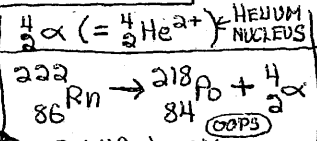 ⁴₂α (= ⁴₂He²⁺) HELIUM NUCLEUS
²²²₈₆Rn → ²¹⁸₈₄Po + ⁴₂α
OOPS